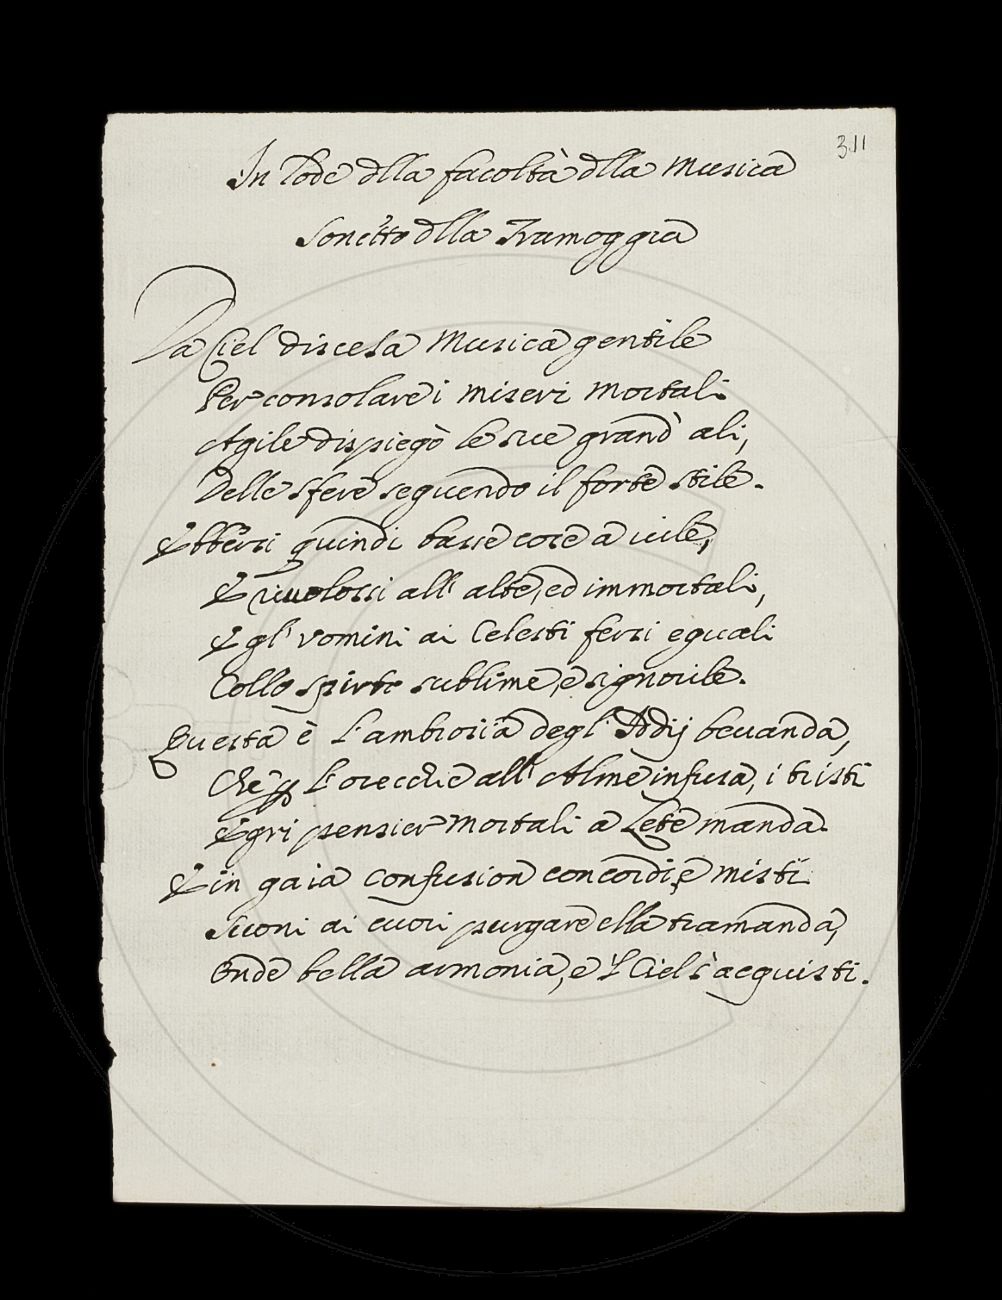 311
In lode dlla facoltà dlla Musica
Sonetto dlla Tramoggia
Da Ciel discesa Musica gentile
Per consolare i miseri mortali
Agile dispiegò le sue grand' ali,
Delle sfere seguendo il forte stile.
Ebbersi quindi basse cose a vile,
E rivolossi all' alte, ed immortali,
E gl' vomini ai Celesti fersi eguali
Collo spirto sublime, e signorile.
Questa è l'ambrosia degl' Ddij bevanda,
Che p l'orecchie all' Alme infusa, i tristi
Egri pensier mortali a Lete manda.
E in gaia confusion concordi, e misti
Suoni ai cuori purgare ella tramanda,
Onde bella armonia, e 'l Ciel s'acquisti.